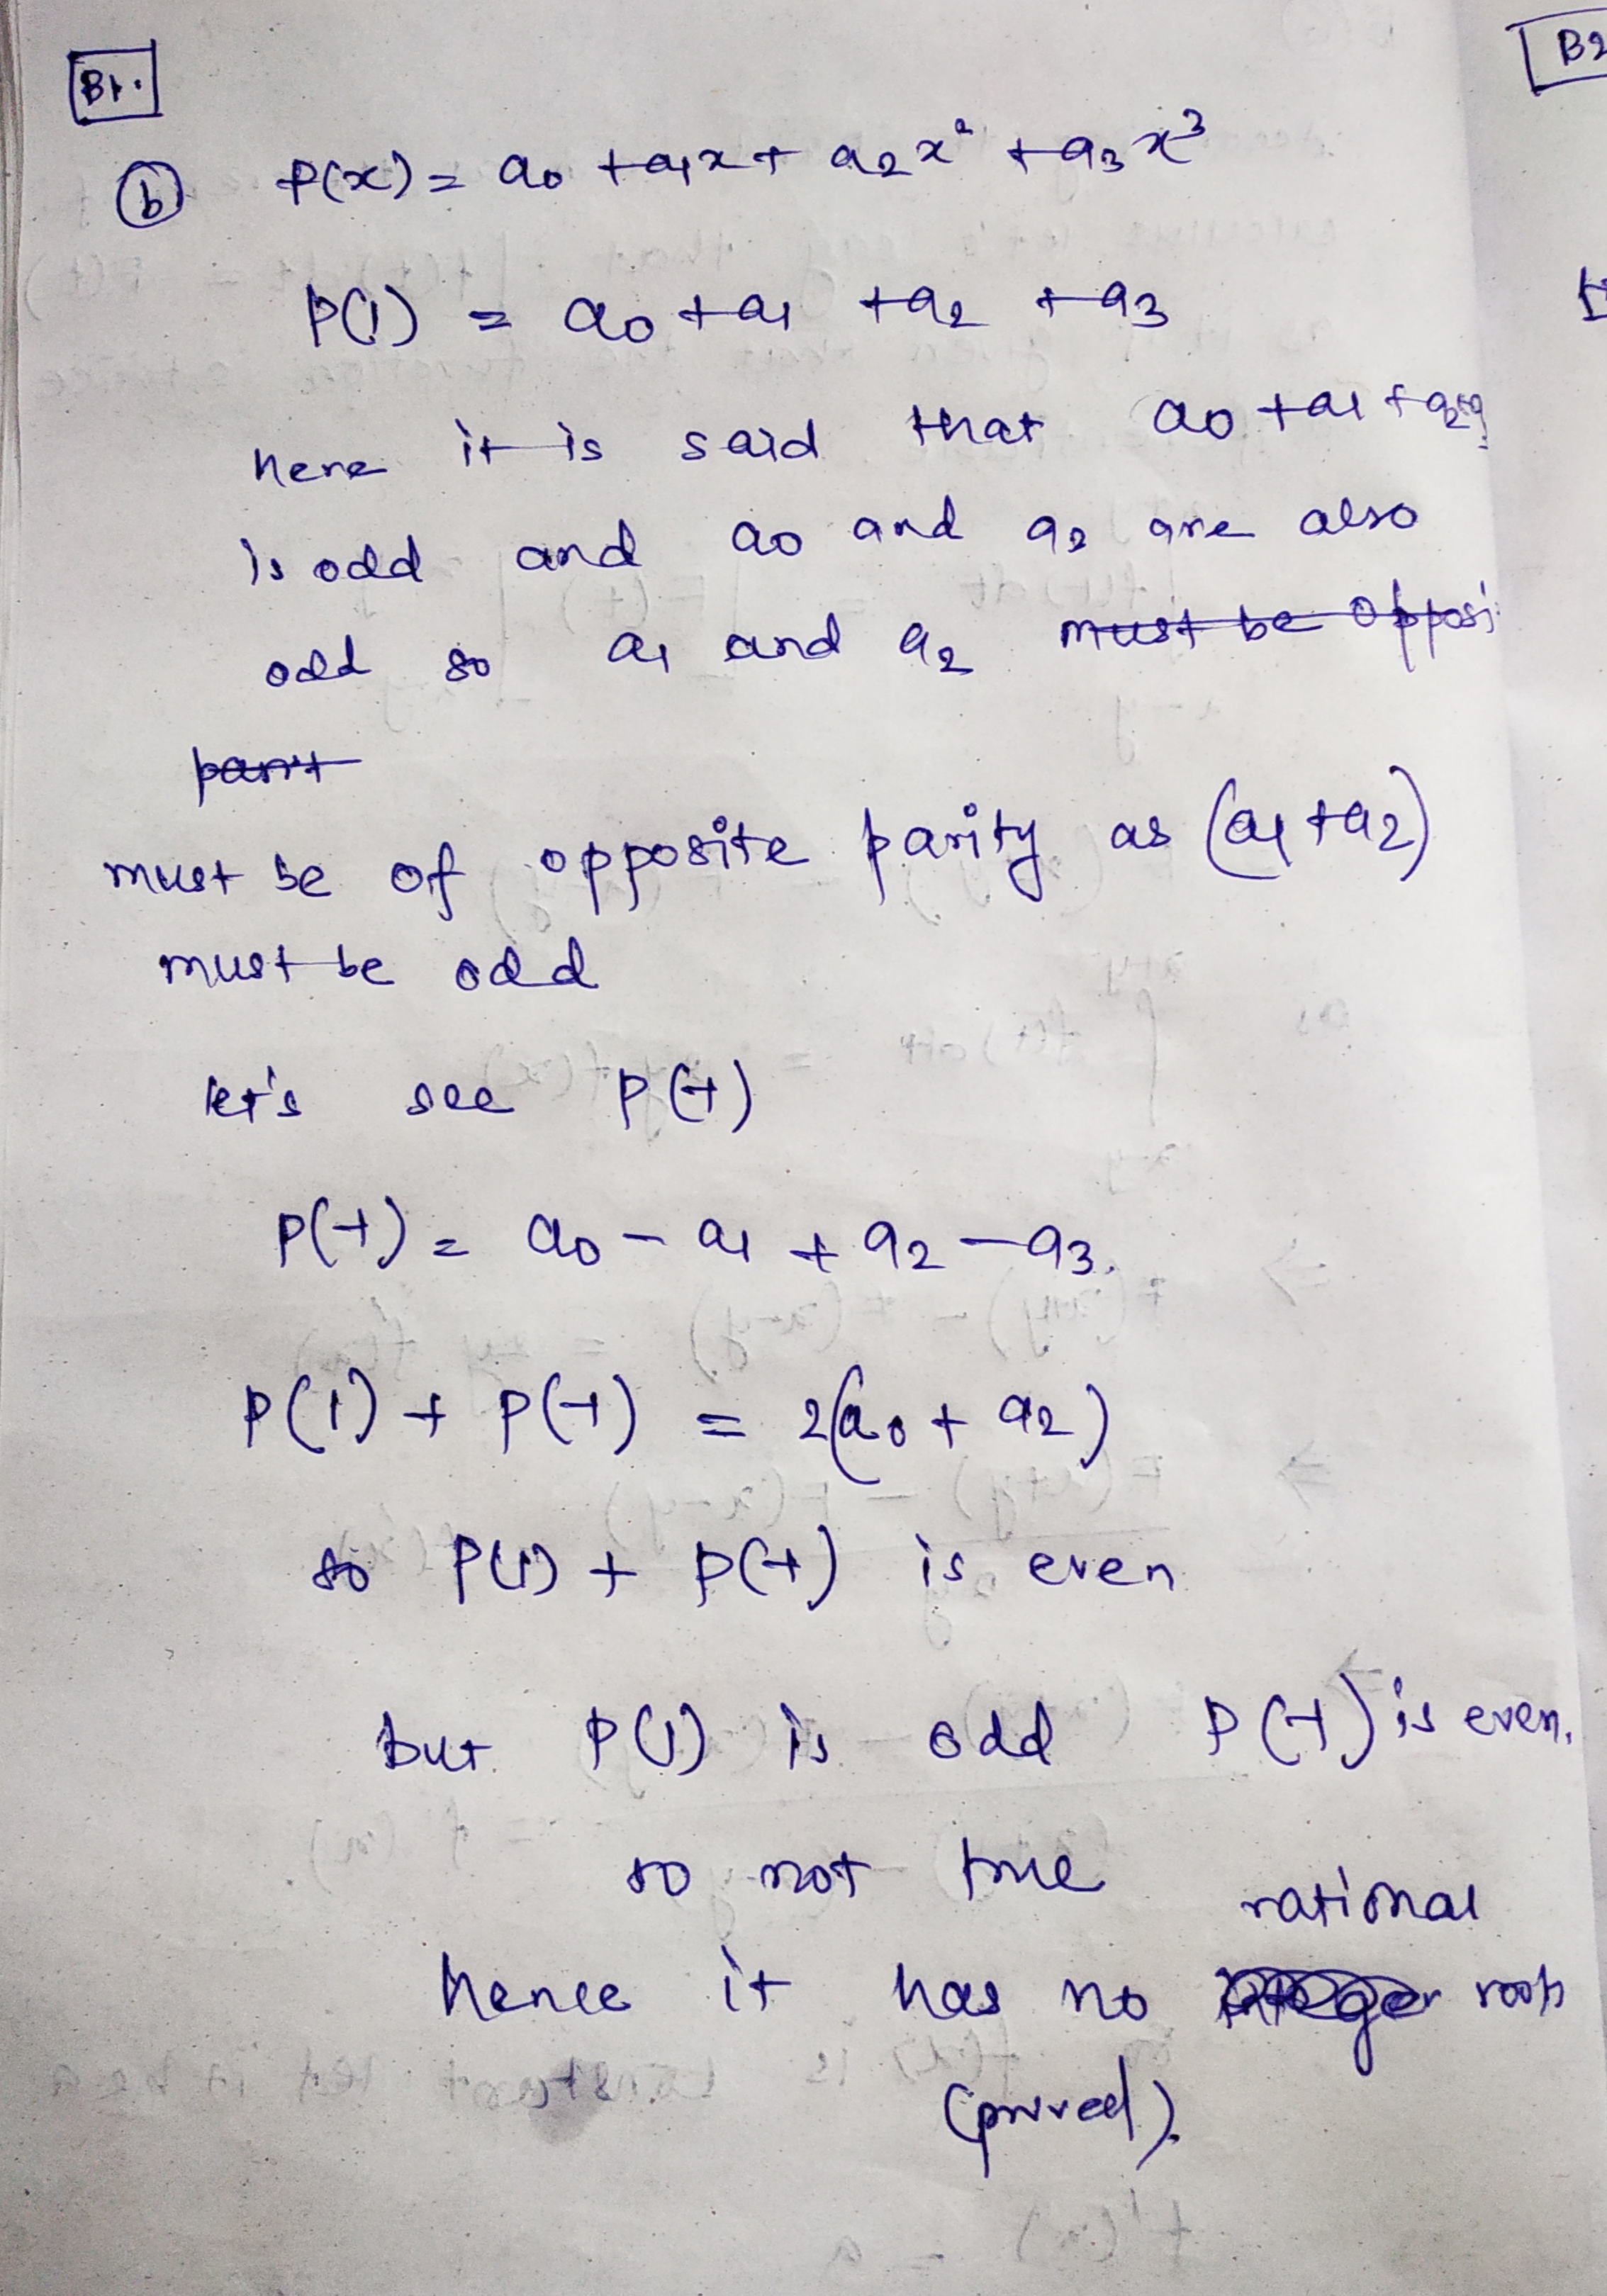 B1.
B2
(b) P(x) = a0 + a1x + a2x² + a3x³
P(1) = a0 + a1 + a2 + a3
here it is said that a0 + a1 + a2 + a3
is odd and a0 and a2 are also
odd so a1 and a2 must be opposi
parit
must be of opposite parity as (a1 + a2)
must be odd
let's see P(-1)
P(-1) = a0 - a1 + a2 - a3.
P(1) + P(-1) = 2(a0 + a2)
so P(1) + P(-1) is even
but P(1) is odd P(-1) is even.
so not true
rational
hence it has no integer roots
(proved).